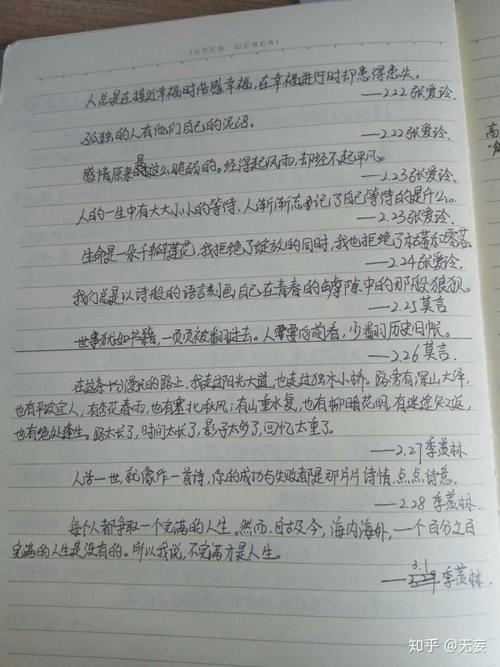 JUREN WENCAI
人总是在接近幸福时倍感幸福,在幸福进行时却患得患失。
——2.22张爱玲.
孤独的人有他们自己的泥沼。
——2.22张爱玲.
感情原来是这么脆弱的。经得起风雨,却经不起平凡。
——2.23张爱玲.
人的一生中有大大小小的等待,人渐渐忘记了自己等待的是什么。
——2.23张爱玲.
生命是一朵千瓣莲花,我拒绝了绽放的同时,我也拒绝了枯萎和零落
——2.24张爱玲.
我们总是以诗般的语言刻画自己在青春的罅隙中的那段狼狈.
——2.25莫言
世事犹如书籍,一页页被翻过去。人要向前看,少翻历史旧帐。
——2.26莫言.
在这条十分漫长的路上,我走过阳光大道,也走过独木小桥。路旁有深山大泽,
也有平坡宜人;有杏花春雨,也有塞北秋风;有山重水复,也有柳暗花明;有迷途知返,
也有绝处逢生。路太长了,时间太长了,影子太多了,回忆太重了。
——2.27季羡林
人活一世,就像作一首诗,你的成功与失败都是那片片诗情,点点诗意.
——2.28 季羡林.
每个人都争取一个完满的人生。然而,自古及今,海内海外,一个百分之百
完满的人生是没有的。所以我说,不完满才是人生。
——3.1 季羡林.
高
知乎 @无妄